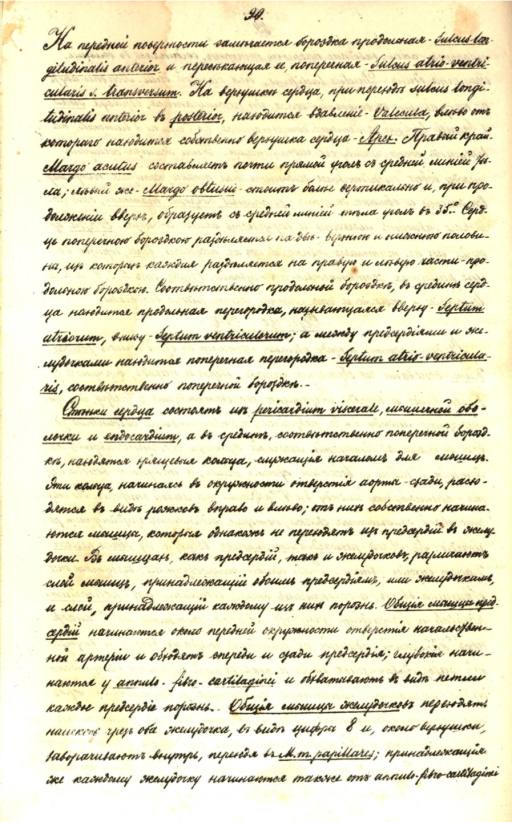 90.
На передней поверхности замѣчается бороздка продольная - Sulcus lon-
gitudinalis anterior и пересѣкающая ее, поперечная - Sulcus atrio-ventri-
cularis s. transversum. На верхушкѣ сердца, при переходѣ sulcus longi-
tudinalis anterior въ posterior, находится вдавленіе - Valecula, влѣво отъ
котораго находится собственно верхушка сердца - Apex. Правый край
Margo acutus составляетъ почти прямой уголъ съ средней линіей тѣ-
ла; лѣвый же - Margo obtusus - стоитъ болѣе вертикально и, при про-
долженіи вверхъ, образуетъ съ средней линіей тѣла уголъ въ 35°. Серд-
це поперечною бороздкою раздѣляется на двѣ - верхнюю и нижнюю полови-
ны, изъ которыхъ каждая раздѣляется на правую и лѣвую части - про-
дольною бороздкою. Соотвѣтственно продольной бороздкѣ, въ срединѣ серд-
ца находится продольная перегородка, называющаяся вверху - Septum
atriorum, внизу - Septum ventriculorum; а между предсердіями и же-
лудочками находится поперечная перегородка - Septum atrio-ventricula-
ris, соотвѣтственно поперечной бороздкѣ. -
Стѣнки сердца состоятъ изъ pericardium viscerale, мышечной обо-
лочки и endocardium, а въ срединѣ, соотвѣтственно поперечной борозд-
кѣ, находятся хрящевыя кольца, служащія началомъ для мышцъ.
Эти кольца, начинаясь въ окружности отверстія аорты - сзади, расхо-
дятся въ видѣ рожковъ вправо и влѣво; отъ нихъ собственно начина-
ются мышцы, которыя однакожъ не переходятъ изъ предсердій въ желу-
дочки. Въ мышцахъ, какъ предсердій, такъ и желудочковъ, различаютъ
слой мышцъ, принадлежащій обоимъ предсердіямъ, или желудочкамъ,
и слой, принадлежащій каждому изъ нихъ порознь. Общія мышцы пред-
сердій начинаются около передней окружности отверстія
ной артеріи и обходятъ спереди и сзади предсердія; глубокія начи-
наются у annulo-fibro-cartilaginei и обхватываютъ въ видѣ петли
каждое предсердіе порознь. - Общія мышцы желудочковъ переходятъ
чрезъ оба желудочка, въ видѣ цифры 8 и, около верхушки,
заворачиваютъ внутрь, переходя въ M.m. papillares; принадлежащія
же каждому желудочку начинаются также отъ annulo-fibro-cartilaginei